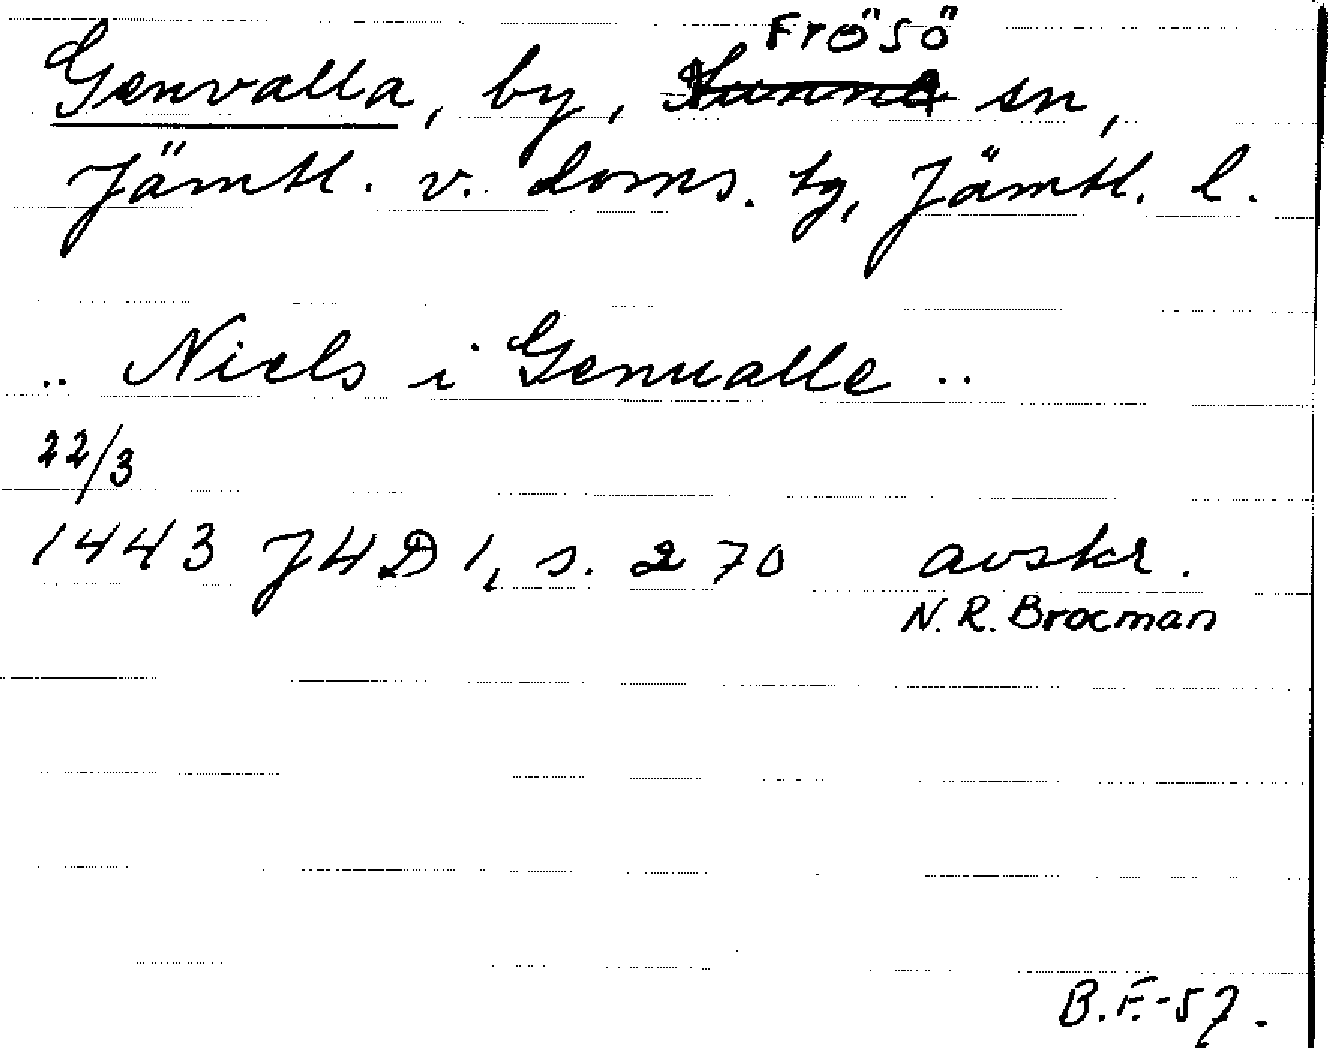 Frösö
Genvalla, by, Sunne sn,
Jämtl. v. doms. tg, Jämtl. l.
.. Niels i Genualle ..
22/3
1443 J4D 1, s. 270 avskr.
N. R. Brocman
B.F.-57.